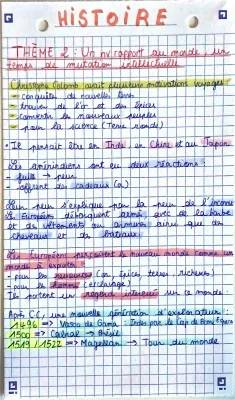 HISTOIRE
THÈME 2 : Un nv rapport au monde, un
temps de mutation intellectuelle
Christophe Colomb avait plusieurs motivations voyages
- conquérir de nouvelles terres
- trouver de l'or et des épices
- convertir les nouveaux peuples
- pour la science (Terre ronde)
• Il pensait être en Inde, en Chine et au Japon.
Les amérindiens ont eu deux réactions :
- fuite → peur
- offrent des cadeaux (or)
Leur peur s'explique par la peur de l'inconnu
Les Européens débarquent armés, avec de la barbe
et des vêtements ou armures ainsi que des
chevaux et des bâteaux.
Les Européens percevaient le nouveau monde comme un
monde à exploiter :
- pour les richesses (or, épices, terres, richesses)
- pour les hommes (esclavage)
Ils portent un regard intéressé sur ce monde.
Après CC, une nouvelle génération d'explorateurs :
1496 => Vasco de Gama : Indes par le Cap de Bonne Espérance
1500 => Cabral → Brésil
1519 / 1522 => Magellan → Tour du monde